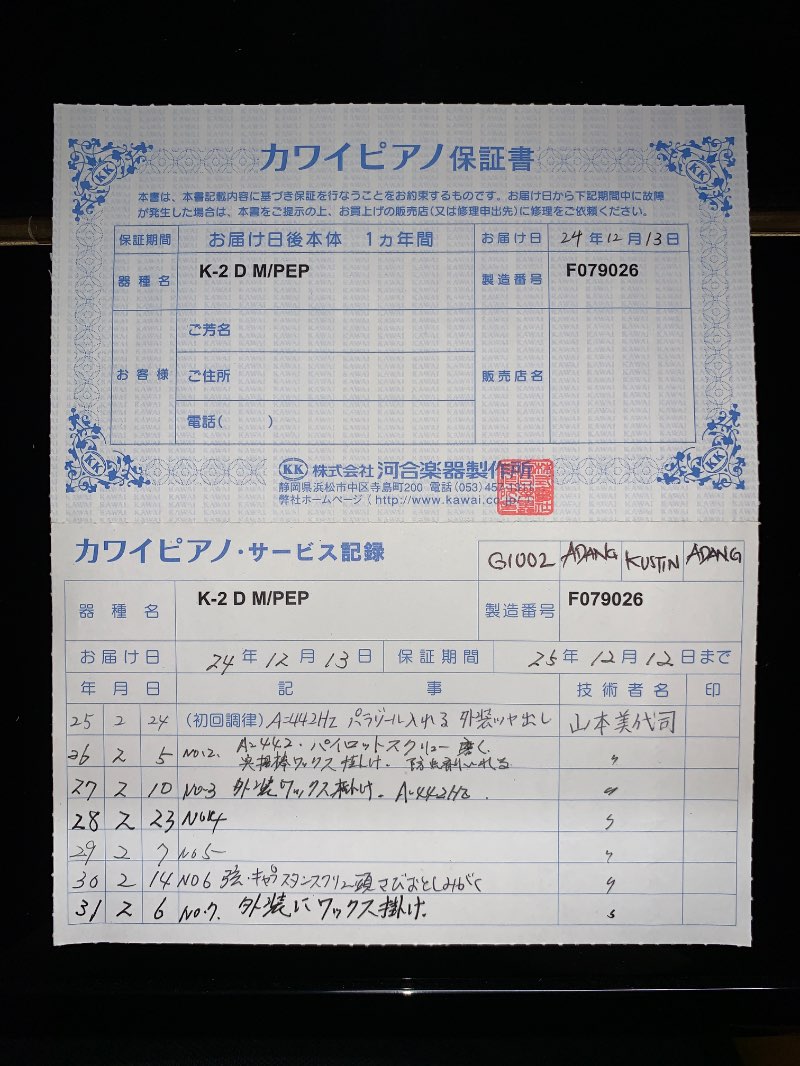 カワイピアノ保証書
本書は、本書記載内容に基づき保証を行なうことをお約束するものです。お届け日から下記期間中に故障
が発生した場合は、本書をご提示の上、お買上げの販売店(又は修理申出先)に修理をご依頼ください。
保証期間 お届け日後本体 1ヵ年間 お届け日 24年12月13日
器種名 K-2 D M/PEP 製造番号 F079026
お客様 ご芳名
ご住所 販売店名
電話( )
KK 株式会社 河合楽器製作所
静岡県浜松市中区寺島町200 電話(053)457-
弊社ホームページ(http://www.kawai.co.jp/)
カワイピアノ・サービス記録 G1002 ADANG KUSTIN ADANG
器種名 K-2 D M/PEP 製造番号 F079026
お届け日 24年12月13日 保証期間 25年12月12日まで
年月日 記事 技術者名 印
25 2 24 (初回調律) A=442Hz パラゾール入れる 外装ツヤ出し 山本美代司
26 2 5 No.2. A=442・パイロットスクリュー磨く
ワックス掛け. 防虫剤いれる 〃
27 2 10 No-3 外装ワックス掛け. A=442Hz. 〃
28 2 23 No4 〃
29 2 7 No5- 〃
30 2 14 NO6 弦・キャプスタンスクリュー頭さびおとしみがく 〃
31 2 6 No.7. 外装にワックス掛け. 〃